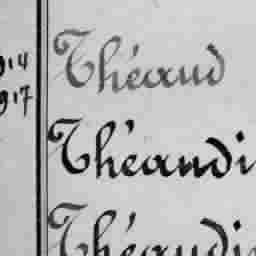 914 Théaud
917 Théaudi
Théaudi